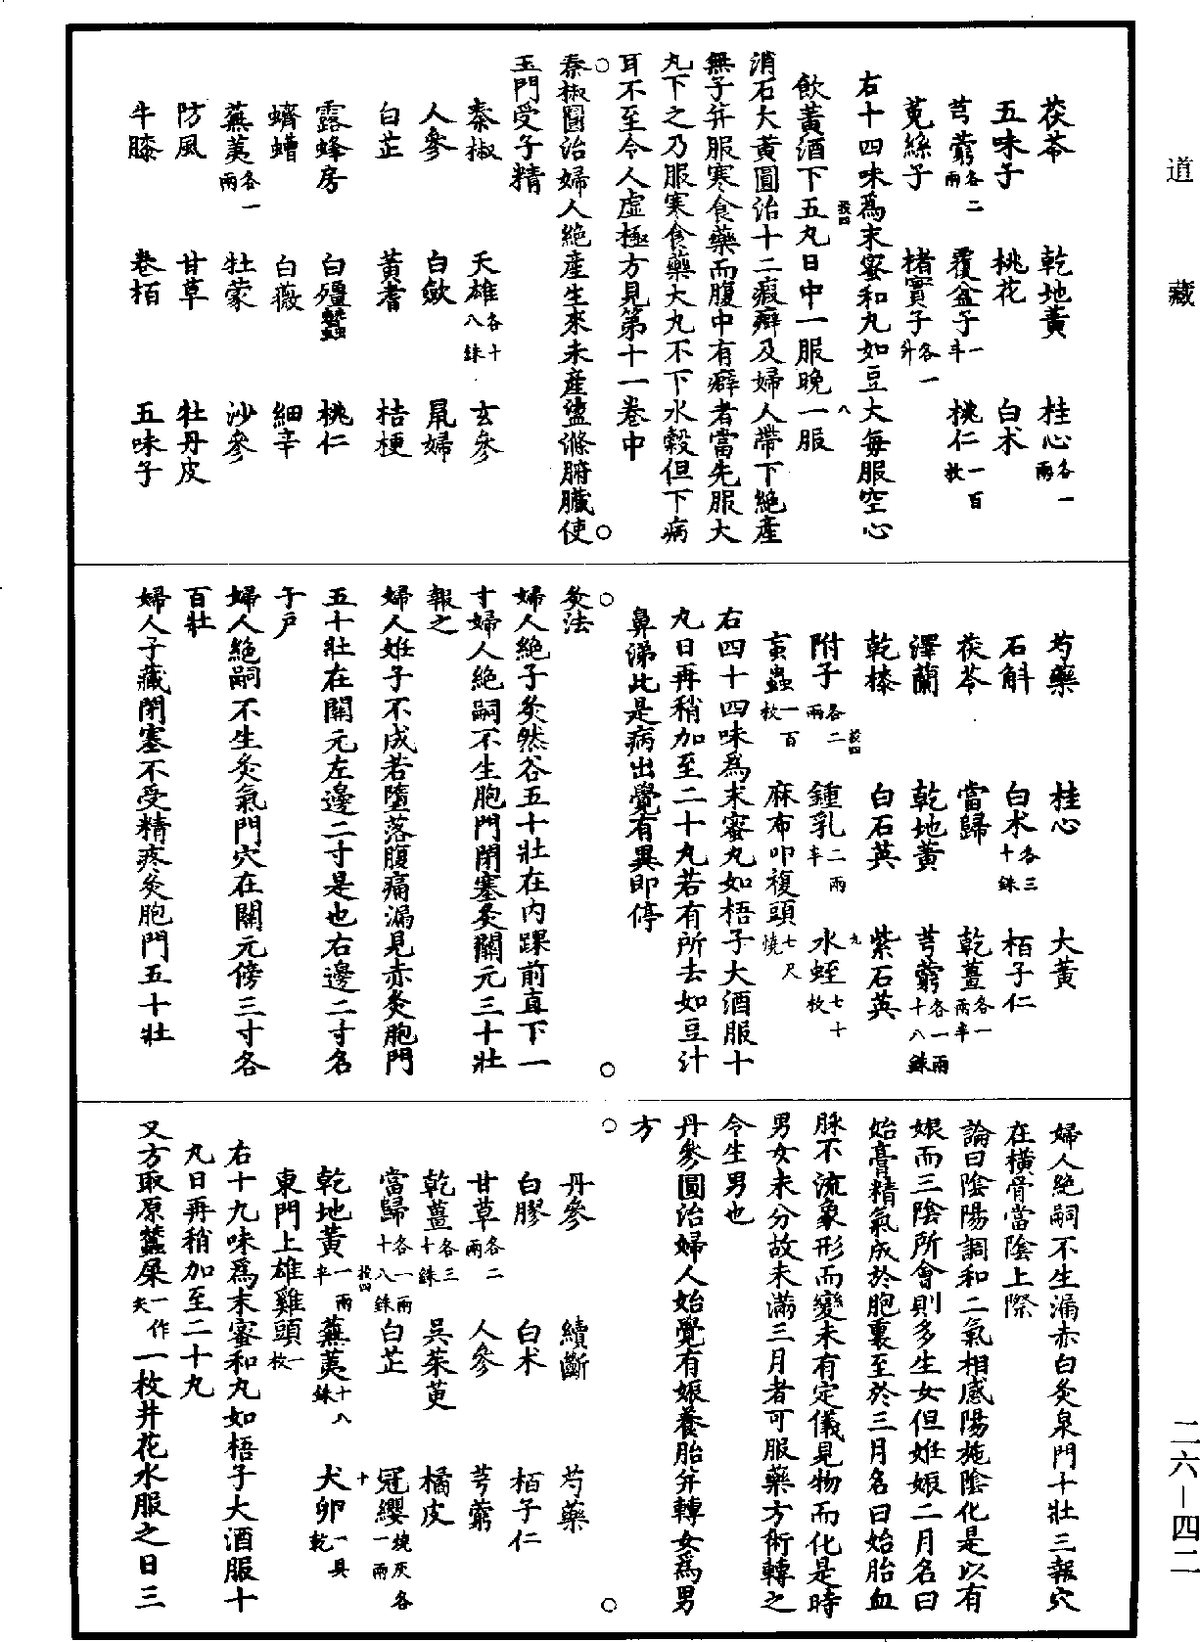 道藏
茯苓 乾地黃 桂心各一兩
五味子 桃花 白朮
芎藭各二兩 覆盆子一升 桃仁一百枚
菟絲子 楮實子各一升
右十四味爲末蜜和丸如豆大每服空心
飲黃酒下五丸日中一服晚一服
消石大黃圓治十二瘕癖及婦人帶下絶產
無子并服寒食藥而腹中有癖者當先服大
丸下之乃服寒食藥大丸不下水穀但下病
耳不至令人虛極方見第十一卷中
秦椒圓治婦人絶產生來未產盪滌腑臟使
玉門受子精
秦椒 天雄各十八銖 玄參
人參 白斂 鼠婦
白芷 黃耆 桔梗
露蜂房 白殭蠶 桃仁
蠐螬 白薇 細辛
蕪荑各一兩 牡蒙 沙參
防風 甘草 牡丹皮
牛膝 卷栢 五味子
芍藥 桂心 大黃
石斛 白朮各三十銖 栢子仁
茯苓 當歸 乾薑各一兩半
澤蘭 乾地黃 芎藭各一兩十八銖
乾榛 白石英 紫石英
附子各二兩 鍾乳二兩半 水蛭七十枚
蝱蟲一百枚 麻布叩複頭七尺燒
右四十四味爲末蜜丸如梧子大酒服十
丸日再稍加至二十丸若有所去如豆汁
鼻涕此是病出覺有異即停
灸法
婦人絶子灸然谷五十壯在內踝前直下一
寸婦人絶嗣不生胞門閉塞灸關元三十壯
報之
婦人妊子不成若墮落腹痛漏見赤灸胞門
五十壯在關元左邊二寸是也右邊二寸名
子戶
婦人絶嗣不生灸氣門穴在關元傍三寸各
百壯
婦人子藏閉塞不受精疼灸胞門五十壯
婦人絶嗣不生漏赤白灸泉門十壯三報穴
在橫骨當陰上際
論曰陰陽調和二氣相感陽施陰化是以有
娠而三陰所會則多生女但妊娠二月名曰
始膏精氣成於胞裏至於三月名曰始胎血
脉不流象形而變未有定儀見物而化是時
男女未分故未滿三月者可服藥方術轉之
令生男也
丹參圓治婦人始覺有娠養胎并轉女爲男
方
丹參 續斷 芍藥
白膠 白朮 栢子仁
甘草各二兩 人參 芎藭
乾薑各三十銖 吳茱萸 橘皮
當歸各一兩十八銖 白芷 冠纓燒灰各一兩
乾地黃一兩半 蕪荑十八銖 犬卵一具乾
東門上雄雞頭一枚
右十九味爲末蜜和丸如梧子大酒服十
丸日再稍加至二十丸
又方取原蠶屎一作矢一枚井花水服之日三
二六—四二